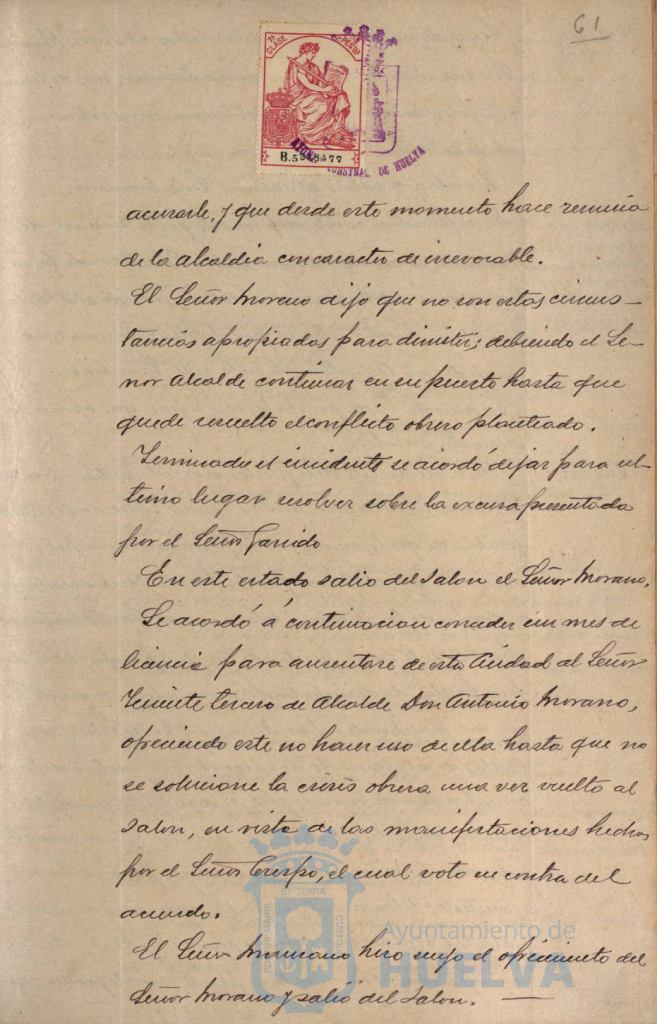 61
7ª CLASE
PESETAS
AYUNT CONSTNAL DE HUELVA
acusarle, y que desde este momento hace renuncia
de la alcaldia con caracter de irrevocable.
El Señor Moreno dijo que no son estas circuns-
tancias apropiadas para dimitir; debiendo el Se-
ñor Alcalde continuar en su puesto hasta que
quede resuelto el conflicto obrero planteado.
Terminado el incidente se acordó dejar para ul-
timo lugar resolver sobre la excusa presentada
por el Señor Garrido
En este estado salio del Salon el Señor Morano.
Se acordó á continuacion conceder un mes de
licencia para ausentarse de esta Ciudad al Señor
Teniente tercero de Alcalde Don Antonio Morano,
ofreciendo este no hacer uso de ella hasta que no
se solucione la crisis obrera una vez vuelto al
Salon, en vista de las manifestaciones hechas
por el Señor Crespo, el cual voto en contra del
acuerdo.
El Señor hizo suyo el ofrecimiento del
Señor Morano y salió del Salon.
PORTUS MARIS ET TERRÆ CUSTODIA
Ayuntamiento de
HUELVA